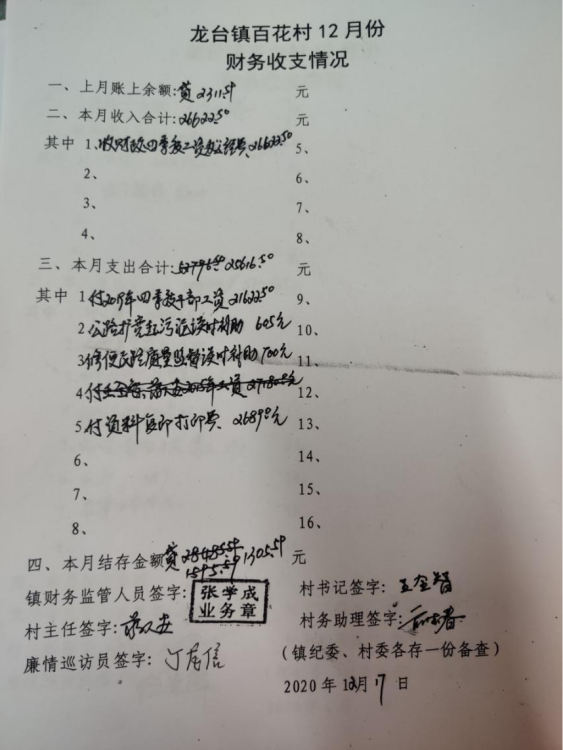 龙台镇百花村12月份
财务收支情况
一、上月账上余额:黄2311.59 元
二、本月收入合计:26622.50 元
其中 1、收财政四季度工资及办公经费、26622.50 5、
2、 6、
3、 7、
4、 8、
三、本月支出合计: 25616.50 元
其中 1付2019年四季度干部工资21622.50 9、
2公路扩宽 误时补助 605元 10、
3修便民路质量监督误时补助700元 11、
4 12、
5付资料复印打印费、2689元 13、
6、 14、
7、 15、
8、 16、
四、本月结存金额黄 1305.59 元
镇财务监管人员签字: 张学成 业务章 村书记签字: 王全智
村主任签字: 村务助理签字:
廉情巡访员签字: (镇纪委、村委各存一份备查)
2020年12月17日